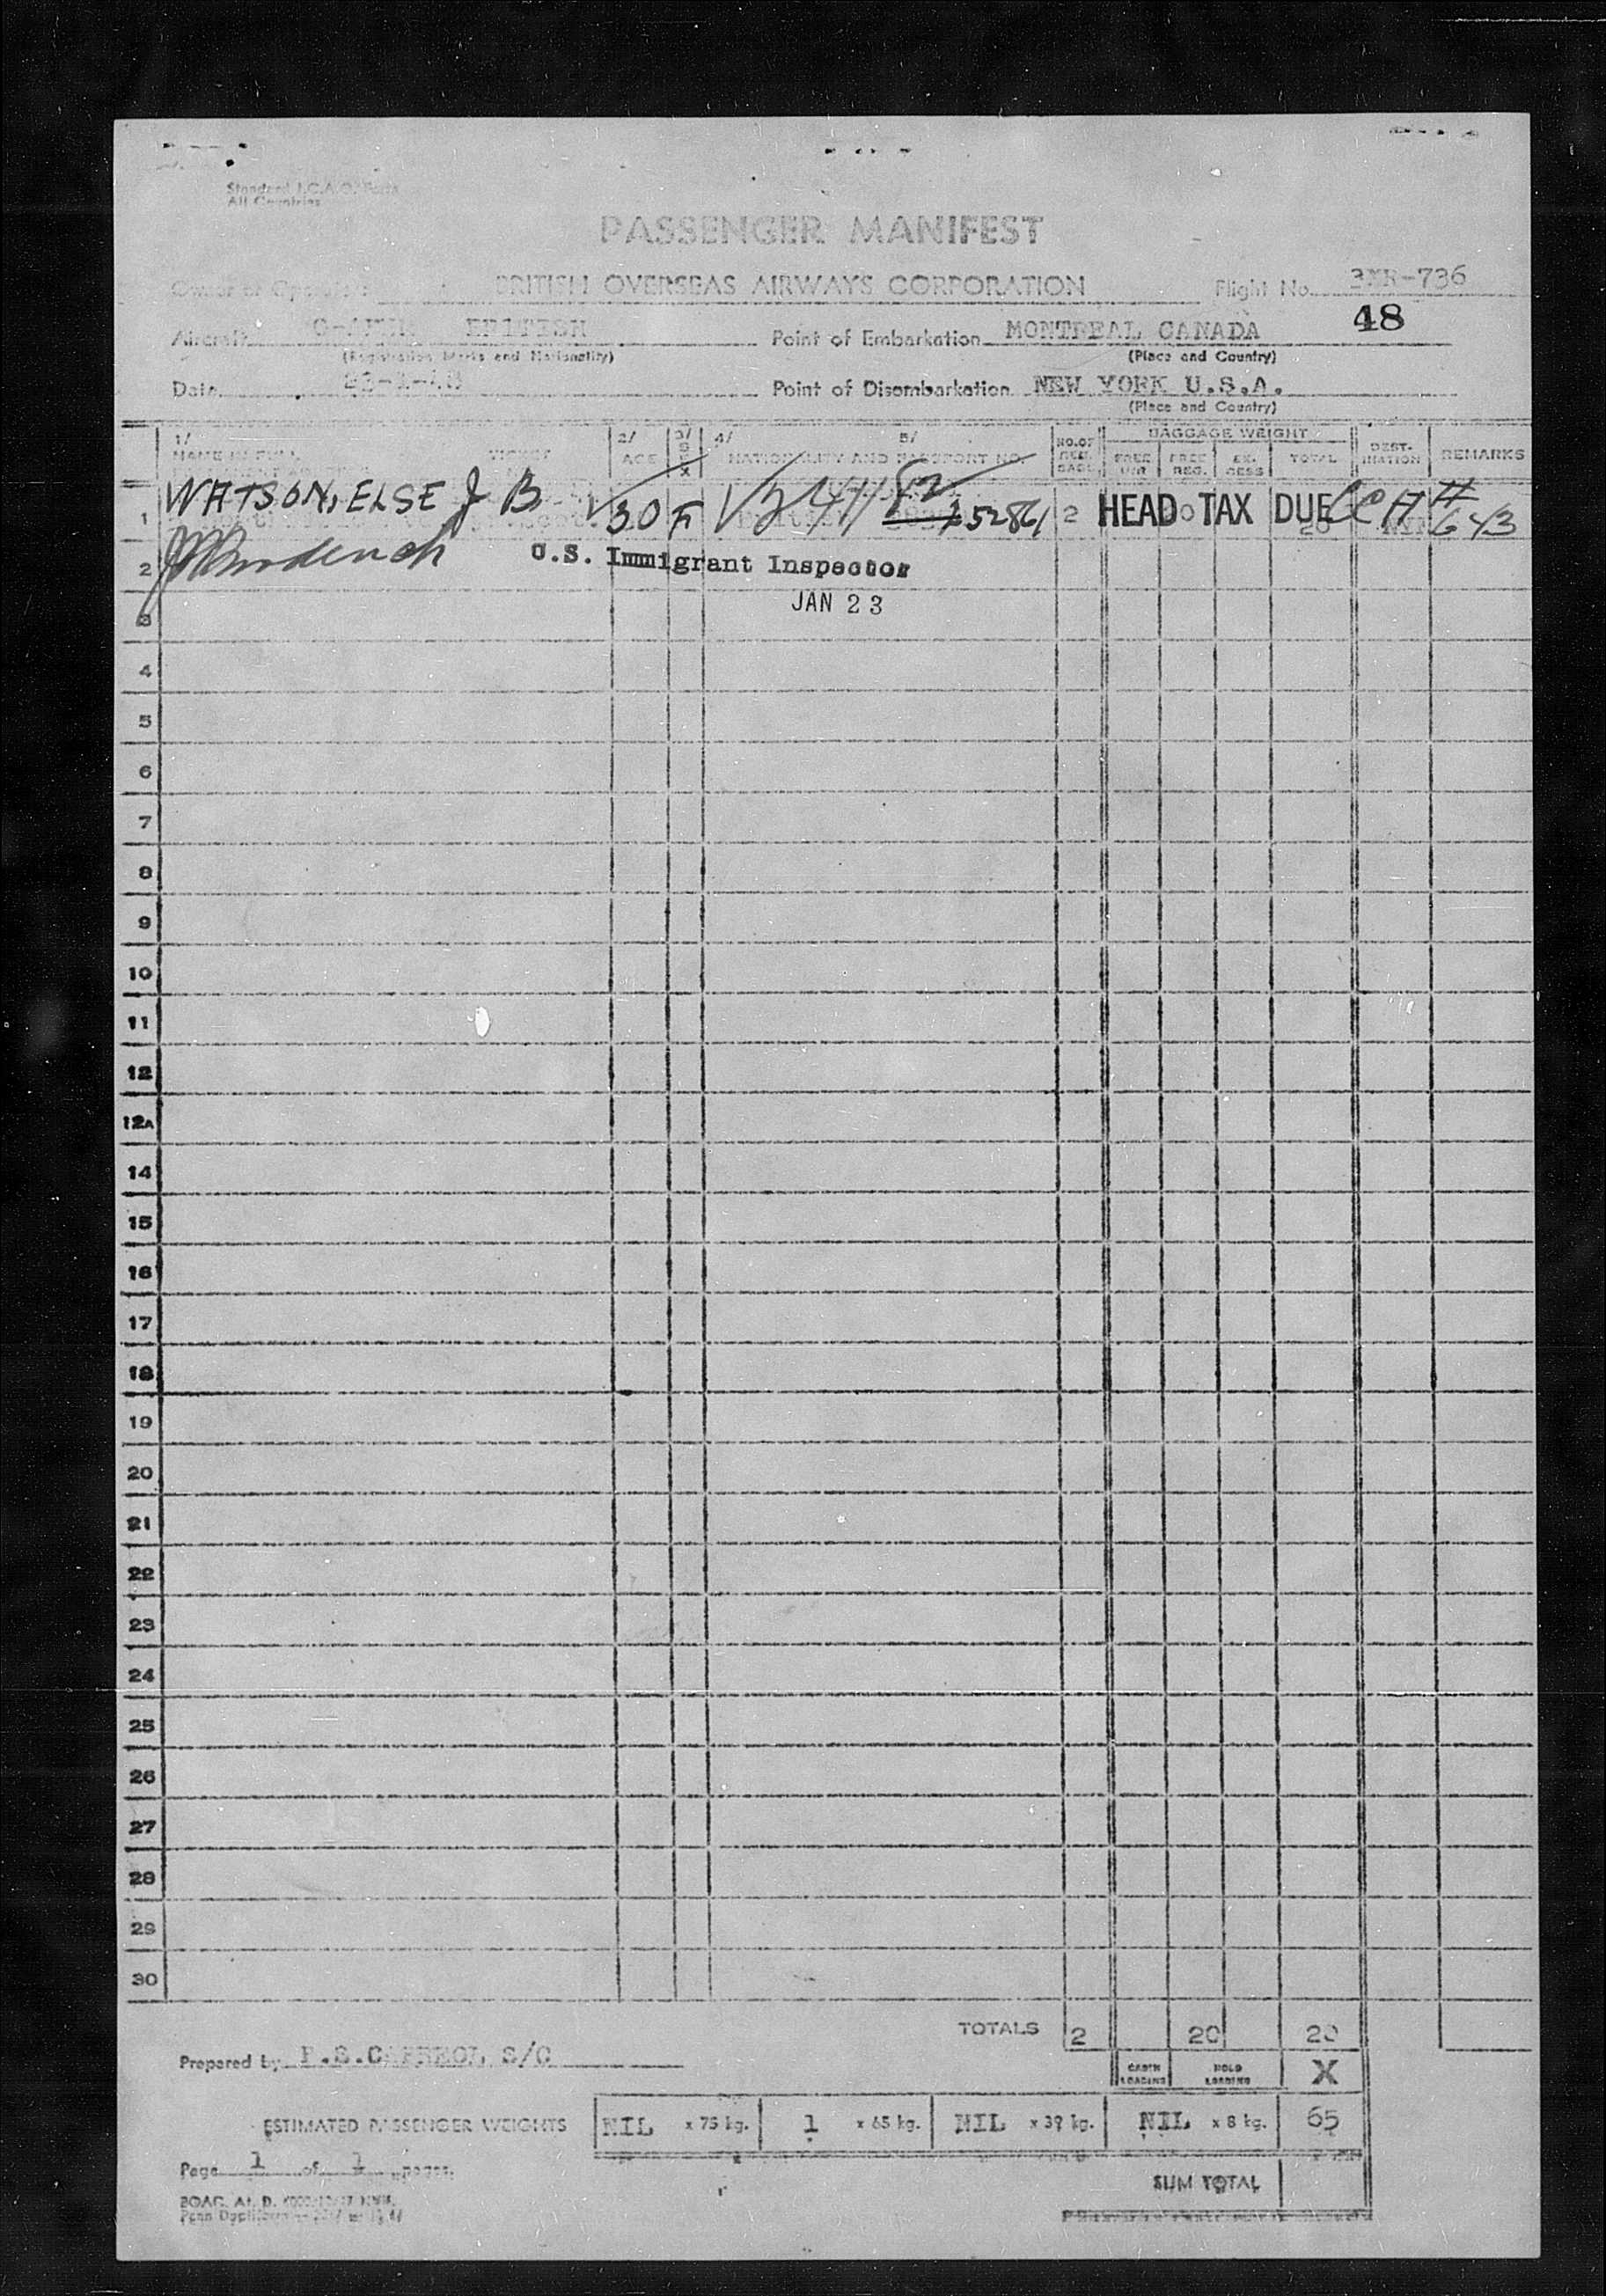 Standard I.C.A.O. Form
All Countries
PASSENGER MANIFEST
Owner or Operator BRITISH OVERSEAS AIRWAYS CORPORATION Flight No. 3XR-736
48
Aircraft BRITISH Point of Embarkation MONTREAL CANADA
(Registration Marks and Nationality) (Place and Country)
Date 23-1-48 Point of Disembarkation NEW YORK U.S.A.
(Place and Country)
1/ NAME IN FULL 2/ AGE 3/ SEX 4/ 5/ NATIONALITY AND PASSPORT NO. NO. OF REG. BAGG. BAGGAGE WEIGHT FREE FREE REG. EX-CESS TOTAL DEST-INATION REMARKS
1 WATSON, ELSE J B 30 F 2 HEAD TAX DUE 20
2 U.S. Immigrant Inspector
JAN 23
3
4
5
6
7
8
9
10
11
12
12A
14
15
16
17
18
19
20
21
22
23
24
25
26
27
28
29
30
TOTALS 2 20 20
Prepared by S/O
CABIN LOADING HOLD LOADING X
ESTIMATED PASSENGER WEIGHTS NIL x 75 kg. 1 x 65 kg. NIL x 39 kg. NIL x 8 kg. 65
Page 1 of 1 pages.
SUM TOTAL